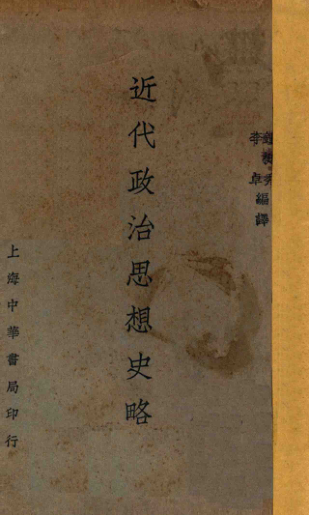 李卓
編譯
近代政治思想史略
上海中華書局印行